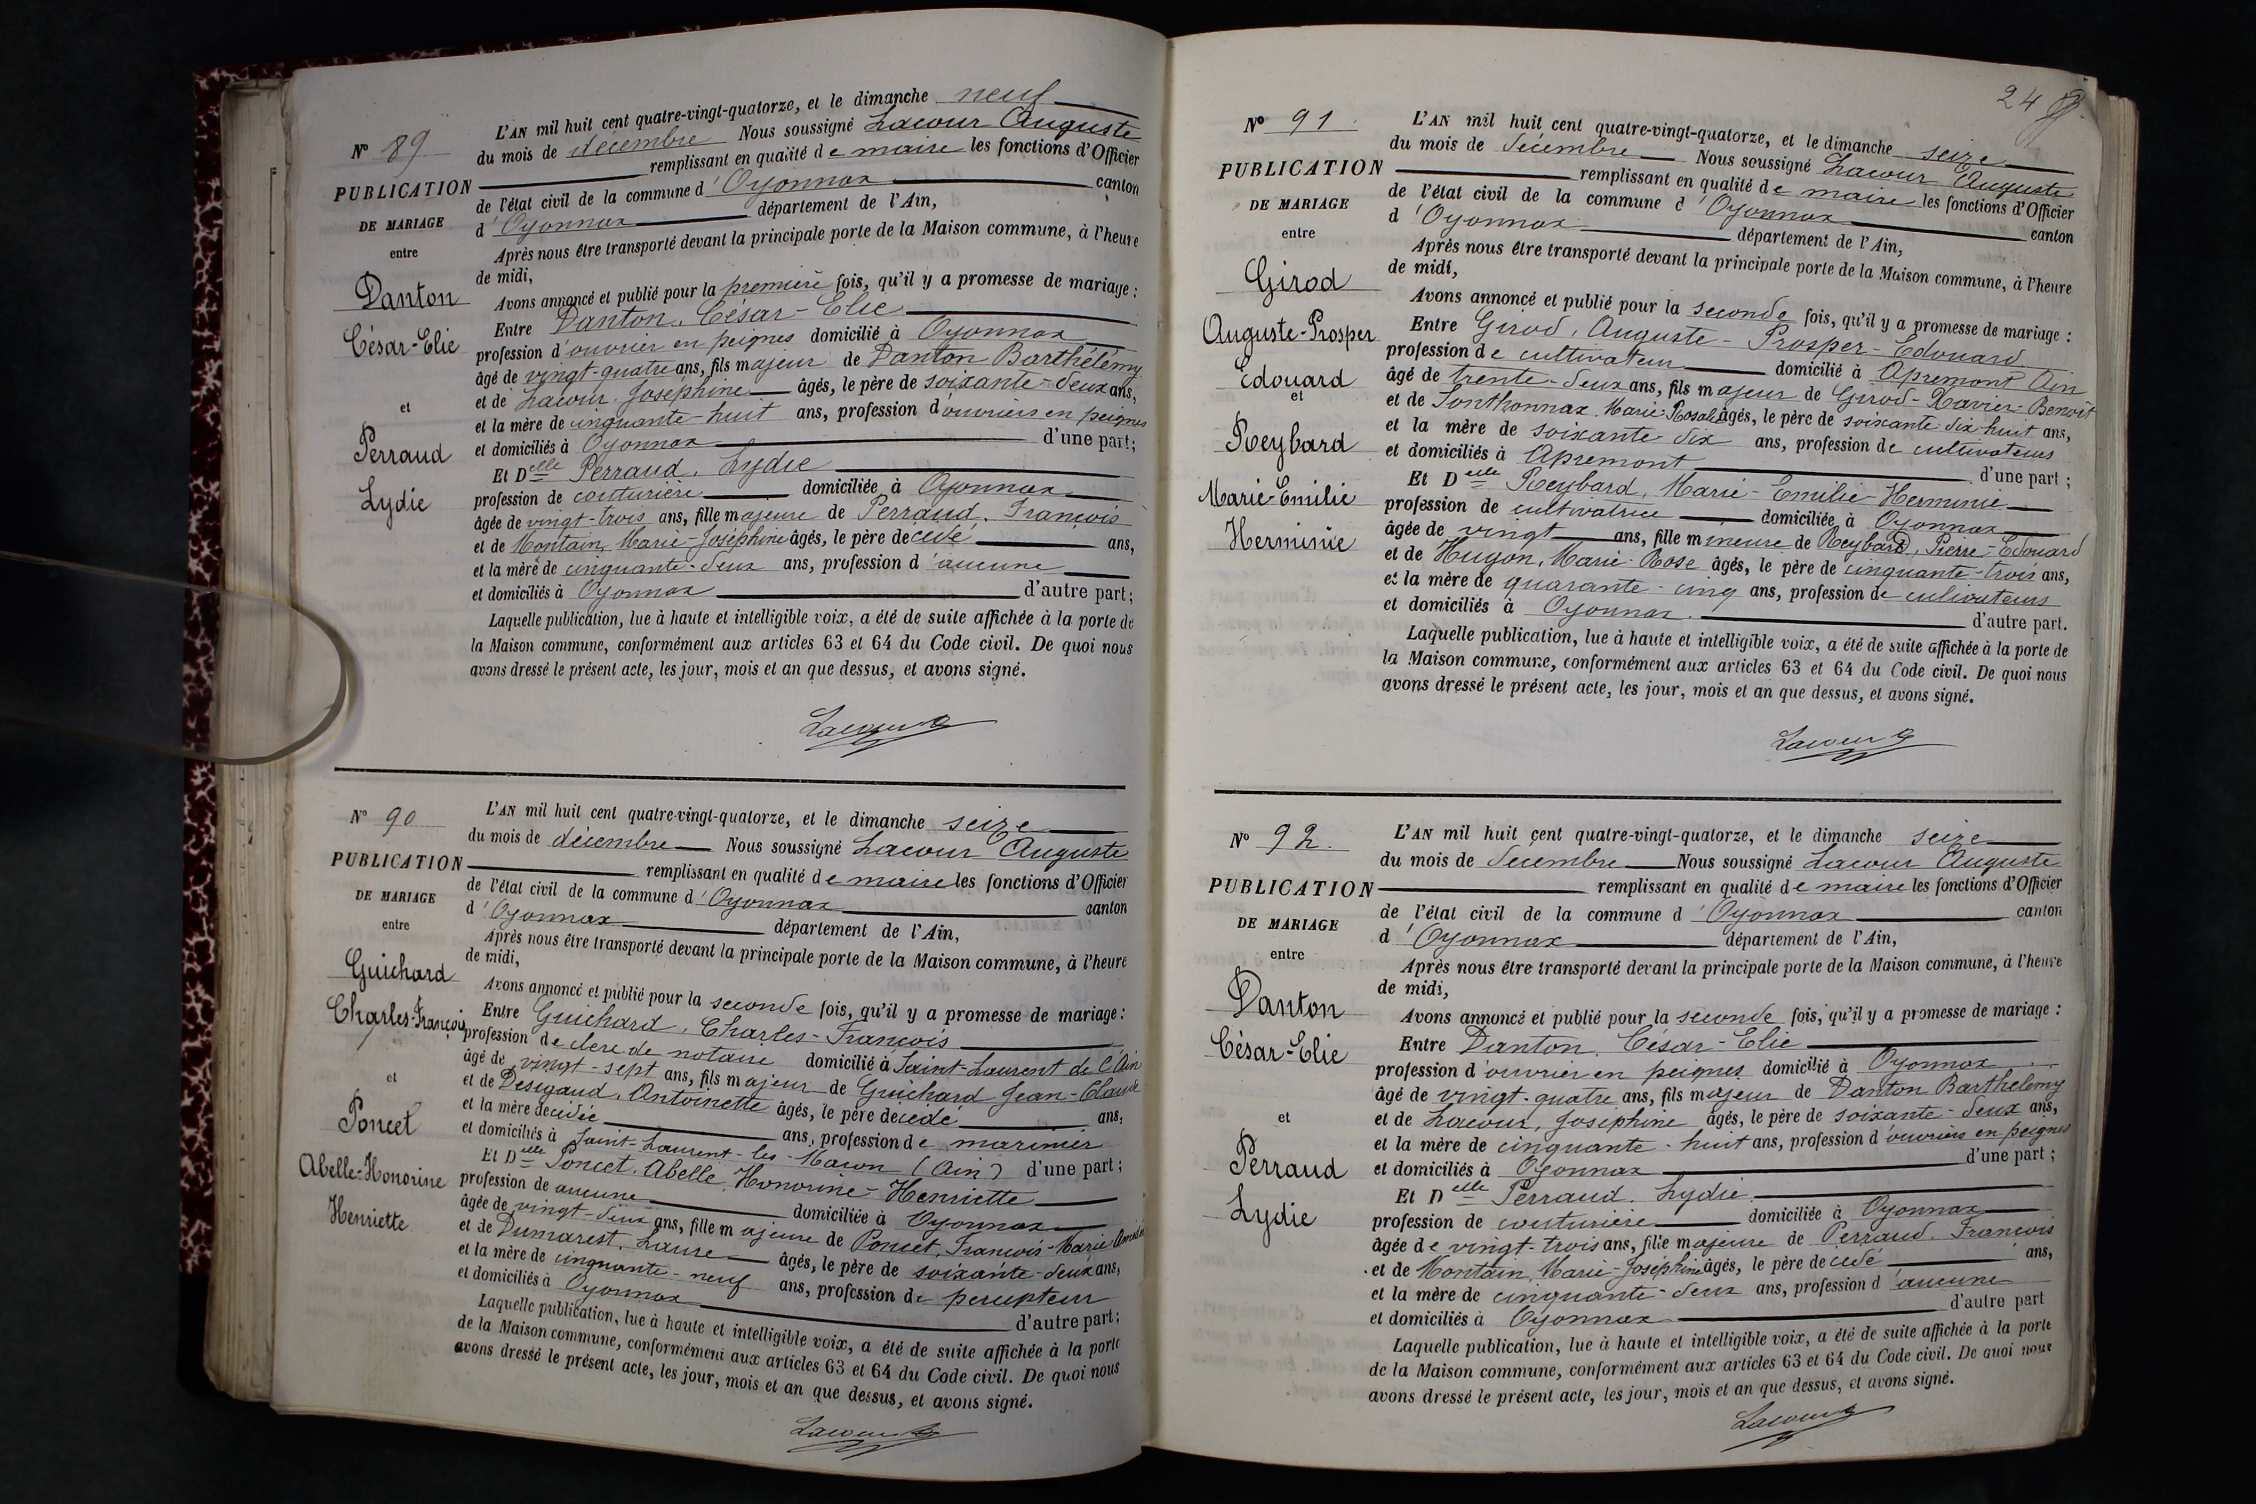 N° 89
PUBLICATION
DE MARIAGE
entre
Danton
César-Elie
et
Perraud
Lydie
L'AN mil huit cent quatre-vingt-quatorze, et le dimanche neuf
du mois de décembre Nous soussigné Lacour Auguste
remplissant en qualité de maire les fonctions d'Officier
de l'état civil de la commune d'Oyonnax canton
d'Oyonnax département de l'Ain,
Après nous être transporté devant la principale porte de la Maison commune, à l'heure
de midi,
Avons annoncé et publié pour la première fois, qu'il y a promesse de mariage :
Entre Danton, César-Elie
profession d'ouvrier en peignes domicilié à Oyonnax
âgé de vingt-quatre ans, fils majeur de Danton Barthélémy
et de Lacour Joséphine âgés, le père de soixante-deux ans,
et la mère de cinquante-huit ans, profession d'ouvriers en peignes
et domiciliés à Oyonnax d'une part;
Et Delle Perraud, Lydie
profession de couturière domiciliée à Oyonnax
âgée de vingt-trois ans, fille majeure de Perraud, François
et de Montain, Marie-Joséphine âgés, le père décédé ans,
et la mère de cinquante-deux ans, profession d'aucune
et domiciliés à Oyonnax d'autre part;
Laquelle publication, lue à haute et intelligible voix, a été de suite affichée à la porte de
la Maison commune, conformément aux articles 63 et 64 du Code civil. De quoi nous
avons dressé le présent acte, les jour, mois et an que dessus, et avons signé.
Lacour A
N° 90
PUBLICATION
DE MARIAGE
entre
Guichard
Charles-François
et
Poncet
Abelle-Honorine
Henriette
L'AN mil huit cent quatre-vingt-quatorze, et le dimanche seize
du mois de décembre Nous soussigné Lacour Auguste
remplissant en qualité de maire les fonctions d'Officier
de l'état civil de la commune d'Oyonnax canton
d'Oyonnax département de l'Ain,
Après nous être transporté devant la principale porte de la Maison commune, à l'heure
de midi,
Avons annoncé et publié pour la seconde fois, qu'il y a promesse de mariage :
Entre Guichard, Charles-François
profession de clerc de notaire domicilié à Saint-Laurent de l'Ain
âgé de vingt-sept ans, fils majeur de Guichard Jean-Claude
et de Desigaud, Antoinette âgés, le père décédé ans,
et la mère décédée ans, profession de marinier
et domiciliés à Saint-Laurent-les-Macon (Ain) d'une part;
Et Delle Poncet, Abelle Honorine-Henriette
profession de aucune domiciliée à Oyonnax
âgée de vingt-deux ans, fille majeure de Poncet, François-Marie Amédée
et de Dumarest, Laure âgés, le père de soixante-deux ans,
et la mère de cinquante-neuf ans, profession de percepteur
et domiciliés à Oyonnax d'autre part;
Laquelle publication, lue à haute et intelligible voix, a été de suite affichée à la porte
de la Maison commune, conformément aux articles 63 et 64 du Code civil. De quoi nous
avons dressé le présent acte, les jour, mois et an que dessus, et avons signé.
Lacour A
24
N° 91
PUBLICATION
DE MARIAGE
entre
Girod
Auguste-Prosper
Edouard
et
Reybard
Marie-Emilie
Herminie
L'AN mil huit cent quatre-vingt-quatorze, et le dimanche seize
du mois de décembre Nous soussigné Lacour Auguste
remplissant en qualité de maire les fonctions d'Officier
de l'état civil de la commune d'Oyonnax canton
d'Oyonnax département de l'Ain,
Après nous être transporté devant la principale porte de la Maison commune, à l'heure
de midi,
Avons annoncé et publié pour la seconde fois, qu'il y a promesse de mariage :
Entre Girod, Auguste-Prosper-Edouard
profession de cultivateur domicilié à Apremont Ain
âgé de trente-deux ans, fils majeur de Girod-Xavier-Benoît
et de Sonthonnax, Marie-Rosalie âgés, le père de soixante dix-huit ans,
et la mère de soixante dix ans, profession de cultivateurs
et domiciliés à Apremont d'une part;
Et Delle Reybard, Marie-Emilie Herminie
profession de cultivatrice domiciliée à Oyonnax
âgée de vingt ans, fille mineure de Reybard, Pierre-Edouard
et de Hugon, Marie-Rose âgés, le père de cinquante-trois ans,
et la mère de quarante-cinq ans, profession de cultivateurs
et domiciliés à Oyonnax. d'autre part.
Laquelle publication, lue à haute et intelligible voix, a été de suite affichée à la porte de
la Maison commune, conformément aux articles 63 et 64 du Code civil. De quoi nous
avons dressé le présent acte, les jour, mois et an que dessus, et avons signé.
Lacour A
N° 92.
PUBLICATION
DE MARIAGE
entre
Danton
César-Elie
et
Perraud
Lydie
L'AN mil huit cent quatre-vingt-quatorze, et le dimanche seize
du mois de décembre Nous soussigné Lacour Auguste
remplissant en qualité de maire les fonctions d'Officier
de l'état civil de la commune d'Oyonnax canton
d'Oyonnax département de l'Ain,
Après nous être transporté devant la principale porte de la Maison commune, à l'heure
de midi,
Avons annoncé et publié pour la seconde fois, qu'il y a promesse de mariage :
Entre Danton, César-Elie
profession d'ouvrier en peignes domicilié à Oyonnax
âgé de vingt-quatre ans, fils majeur de Danton Barthelemy
et de Lacour, Joséphine âgés, le père de soixante-deux ans,
et la mère de cinquante-huit ans, profession d'ouvriers en peignes
et domiciliés à Oyonnax d'une part;
Et Delle Perraud, Lydie
profession de couturière domiciliée à Oyonnax
âgée de vingt-trois ans, fille majeure de Perraud, François
et de Montain, Marie-Joséphine âgés, le père décédé ans,
et la mère de cinquante-deux ans, profession d'aucune
et domiciliés à Oyonnax d'autre part
Laquelle publication, lue à haute et intelligible voix, a été de suite affichée à la porte
de la Maison commune, conformément aux articles 63 et 64 du Code civil. De quoi nous
avons dressé le présent acte, les jour, mois et an que dessus, et avons signé.
Lacour A